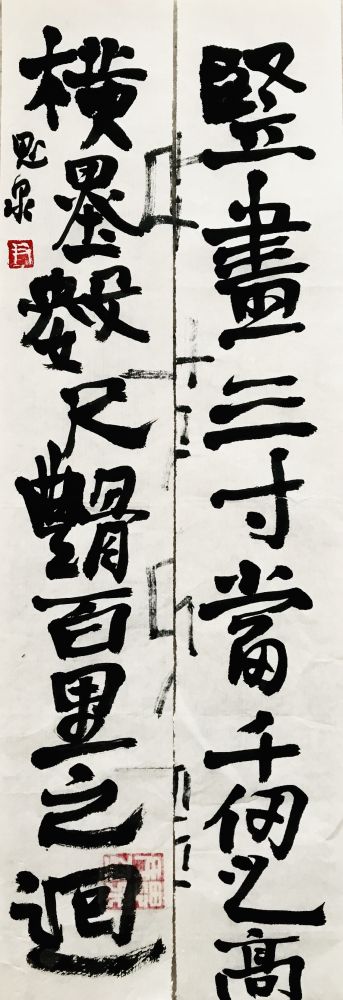 竪畫三寸當千仞之高
橫墨數尺體百里之迴